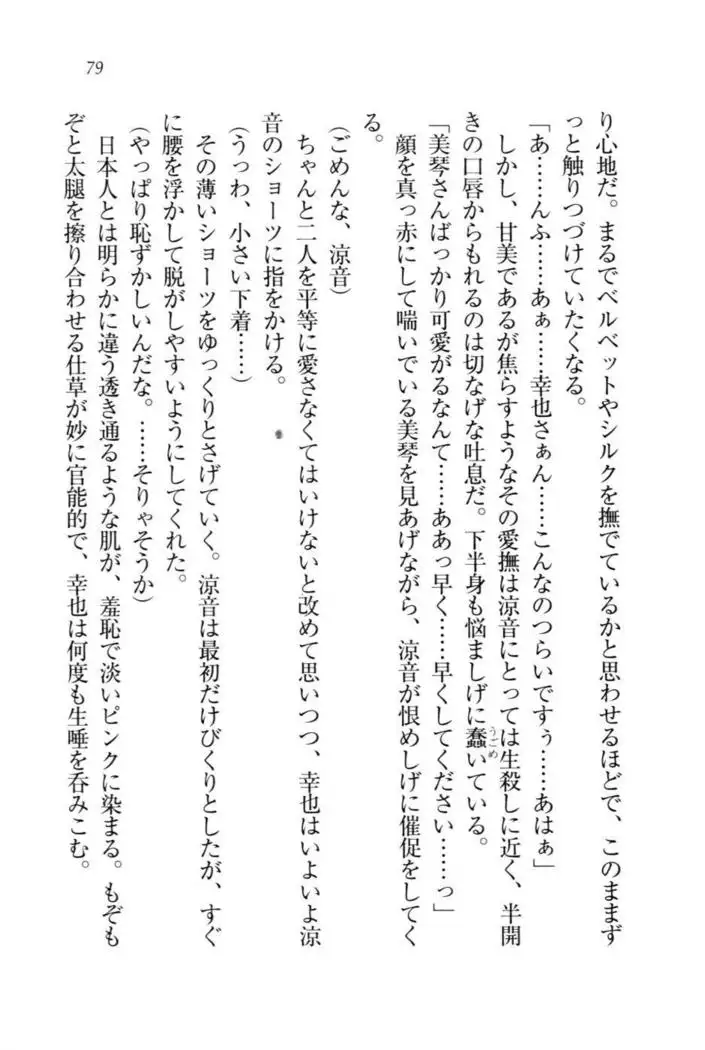 79
り心地だ。まるでベルベットやシルクを撫でているかと思わせるほどで、このままず
っと触りつづけていたくなる。
「あ……んふ……あぁ……幸也さぁん……こんなのつらいですぅ……あはぁ」
しかし、甘美であるが焦らすようなその愛撫は涼音にとっては生殺しに近く、半開
きの口唇からもれるのは切なげな吐息だ。下半身も悩ましげに蠢いている。
うごめ
「美琴さんばっかり可愛がるなんて……ああっ早く……早くしてください……っ」
顔を真っ赤にして喘いでいる美琴を見あげながら、涼音が恨めしげに催促をしてく
る。
(ごめんな、涼音)
ちゃんと二人を平等に愛さなくてはいけないと改めて思いつつ、幸也はいよいよ涼
音のショーツに指をかける。
(うっわ、小さい下着……)
その薄いショーツをゆっくりとさげていく。涼音は最初だけびくりとしたが、すぐ
に腰を浮かして脱がしやすいようにしてくれた。
(やっぱり恥ずかしいんだな。……そりゃそうか)
日本人とは明らかに違う透き通るような肌が、羞恥で淡いピンクに染まる。もぞも
ぞと太腿を擦り合わせる仕草が妙に官能的で、幸也は何度も生唾を呑みこむ。